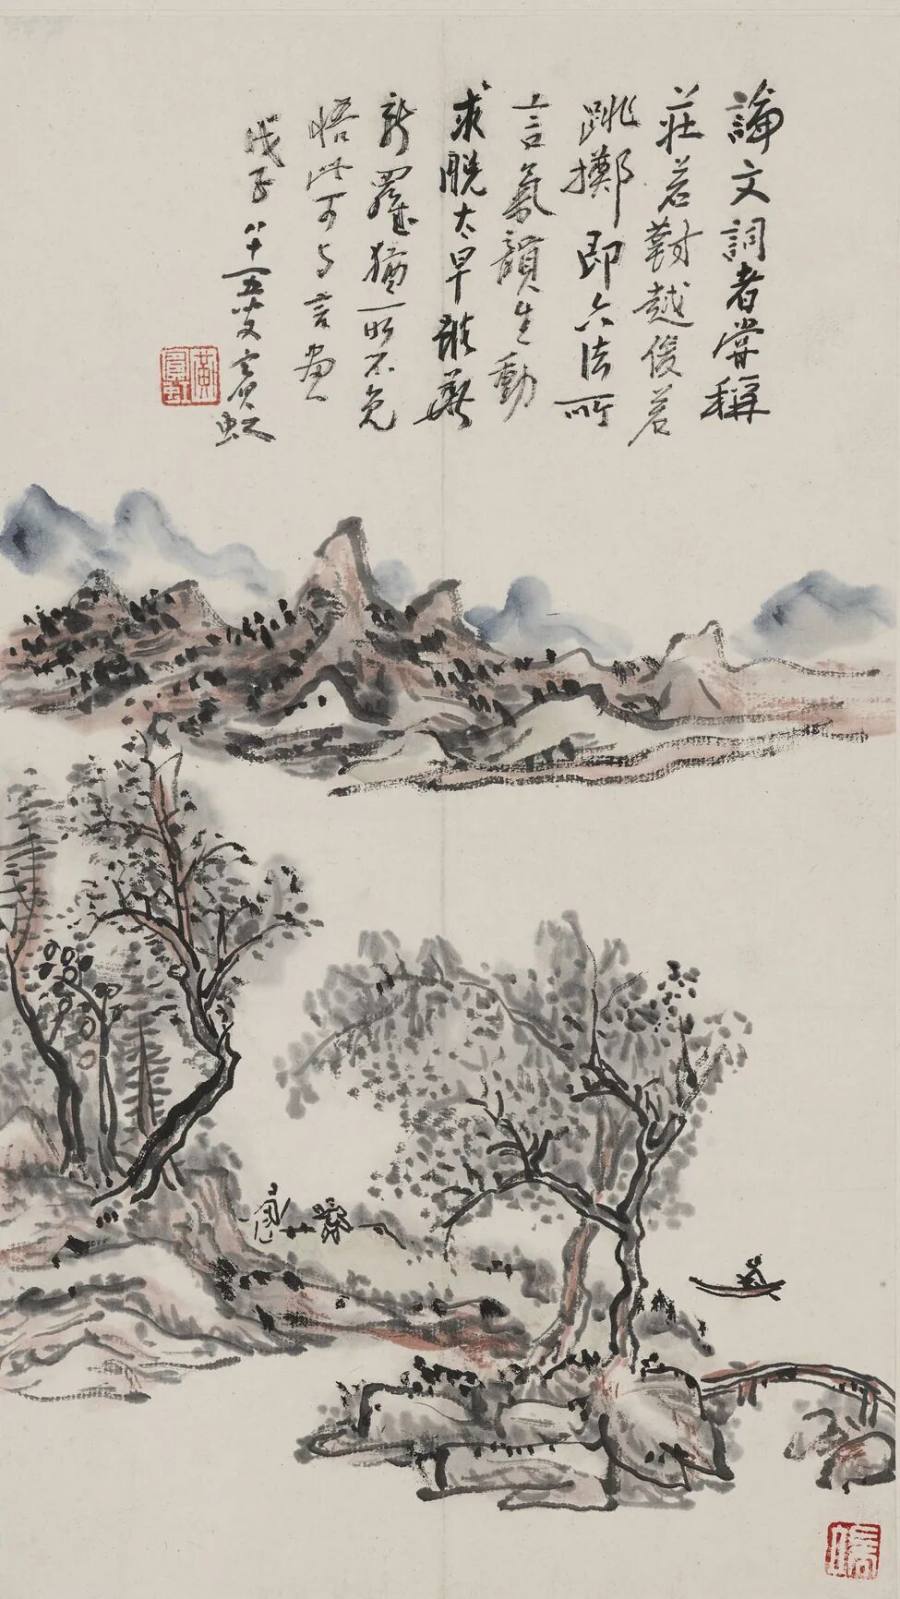 論文詞者嘗稱
莊若對越俊若
跳擲即六法所
言氣韻生動
求脫太早誰華
新羅猶所不免
悟此可与言畫
戊子八十五叟賓虹
黃賓虹